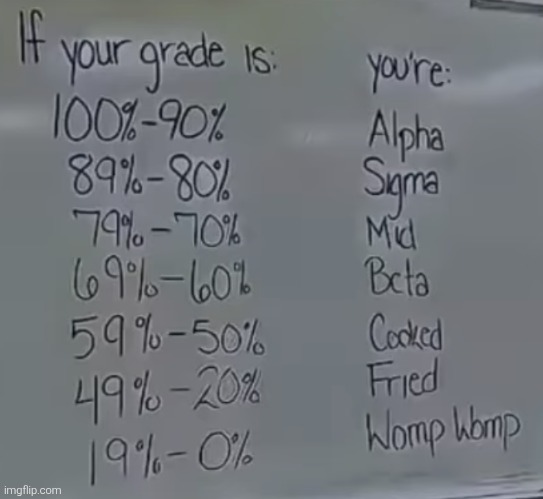 If your grade is: you're:
100%-90% Alpha
89%-80% Sigma
79%-70% Mid
69%-60% Beta
59%-50% Cooked
49%-20% Fried
19%-0% Womp Womp
imgflip.com